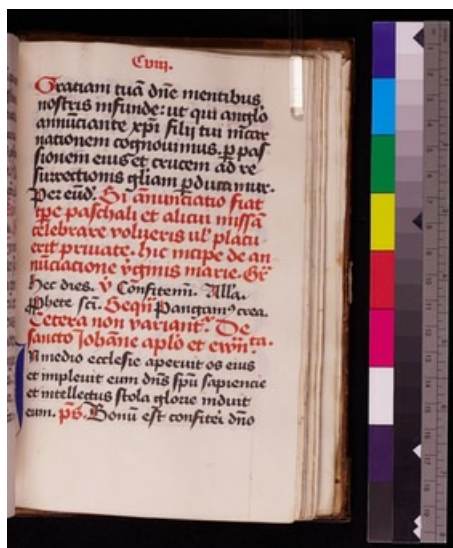 Cviij.
Gratiam tuā dn̄e mentibus
nostris infunde: ut qui anglo
annūciante xp̄i filij tui incar
nationem cognouimus. ꝑ pas
sionem eius et crucem ad re
surrectionis gl̄iam ꝑducamur.
Per eūd'. Si annūciatio fiat
tp̄e paschali et alicui missā
celebrare volueris ul' placu
erit priuate. hic incipe de an
nūciatione v̄ginis marie. Gr̄
hec dies. v̄ Confitem̄. Alla.
Prophete sc̄i. Sequn̄ Pangamꝰ crea.
Cetera non variant᷑. De
sancto Johāne ap̄lo et ewn̄.ta.
In medio ecclesie aperuit os eius
et impleuit eum dn̄s sp̄u sapiencie
et intellectus stola glorie induit
eum. ps̄. Bonū est confiteri dn̄o